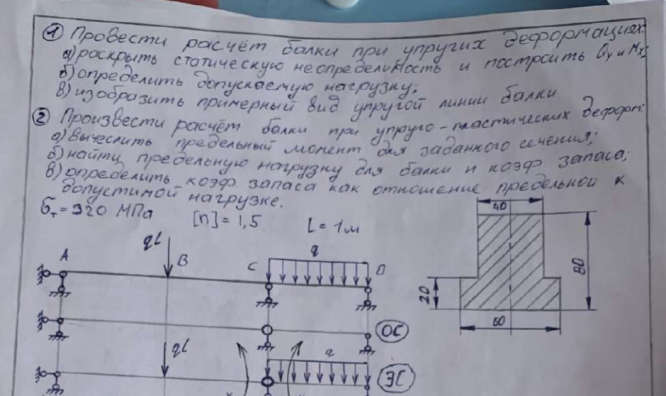 ① Провести расчёт балки при упругих деформациях:
а) раскрыть статическую неопределимость и построить Qy и Mx;
б) определить допускаемую нагрузку;
в) изобразить примерный вид упругой линии балки
② Произвести расчёт балки при упруго-пластических деформ:
а) вычеслить предельный момент для заданного сечения;
б) найти предельную нагрузку для балки и коэф запаса;
в) определить коэф запаса как отношение предельной к
допустимой нагрузке.
σт = 320 МПа [n] = 1,5 L = 1м
40
qL q
A B C D
80
20
60
ОС
qL q
ЭС